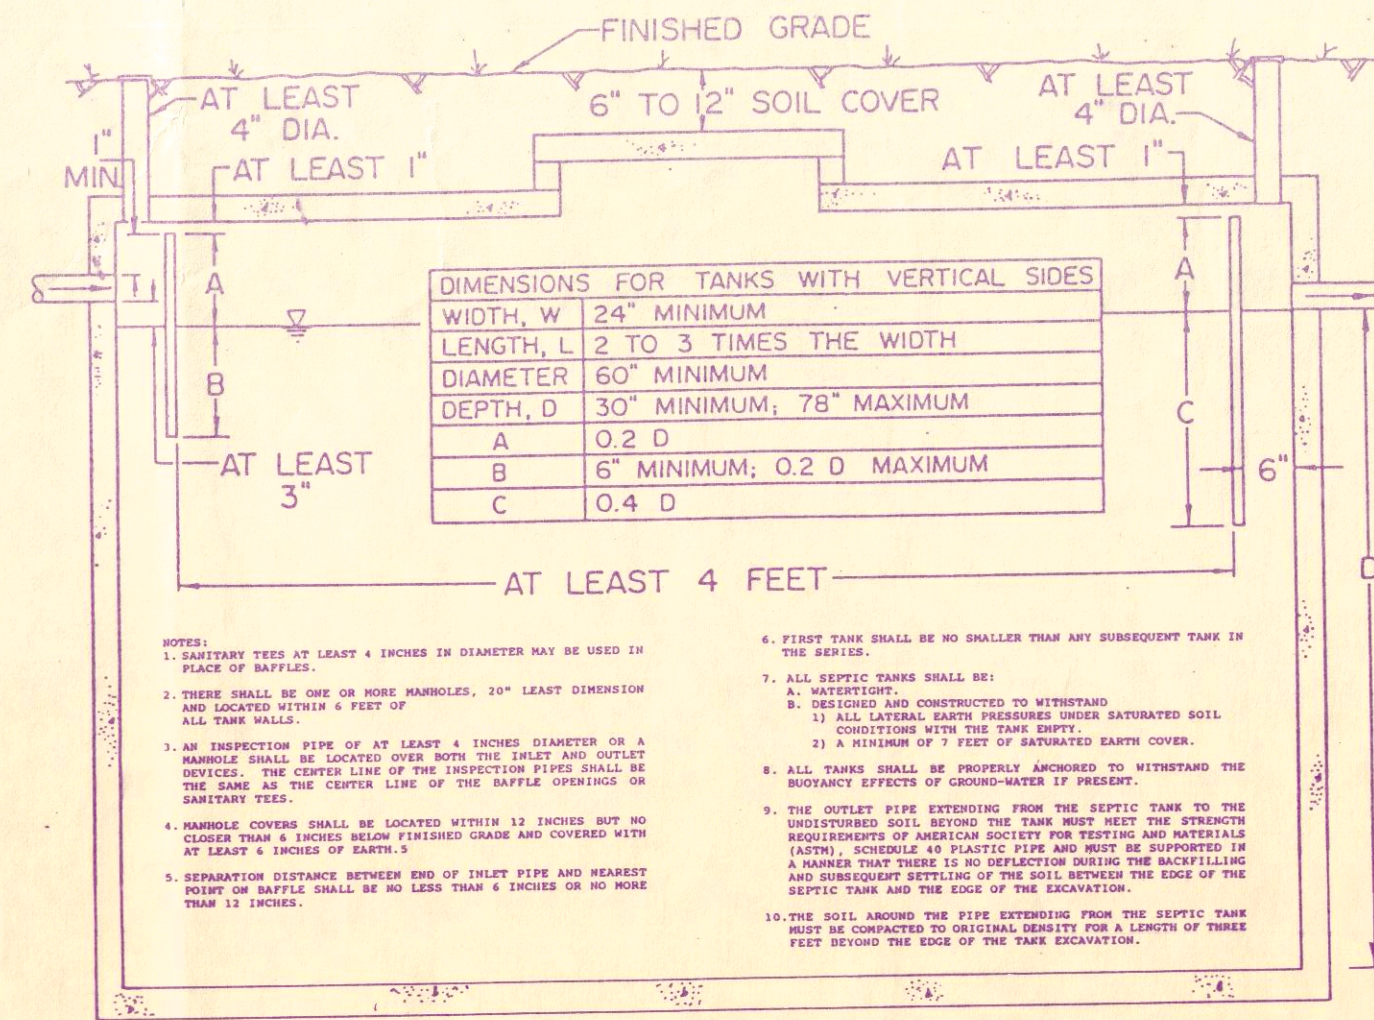 FINISHED GRADE
AT LEAST
4" DIA.
6" TO 12" SOIL COVER
AT LEAST
4" DIA.
1"
MIN.
AT LEAST 1"
AT LEAST 1"
A
A
DIMENSIONS FOR TANKS WITH VERTICAL SIDES
WIDTH, W 24" MINIMUM
LENGTH, L 2 TO 3 TIMES THE WIDTH
DIAMETER 60" MINIMUM
DEPTH, D 30" MINIMUM; 78" MAXIMUM
A 0.2 D
B 6" MINIMUM; 0.2 D MAXIMUM
C 0.4 D
B
C
AT LEAST
3"
6"
AT LEAST 4 FEET
D
NOTES:
1. SANITARY TEES AT LEAST 4 INCHES IN DIAMETER MAY BE USED IN
PLACE OF BAFFLES.
2. THERE SHALL BE ONE OR MORE MANHOLES, 20" LEAST DIMENSION
AND LOCATED WITHIN 6 FEET OF
ALL TANK WALLS.
3. AN INSPECTION PIPE OF AT LEAST 4 INCHES DIAMETER OR A
MANHOLE SHALL BE LOCATED OVER BOTH THE INLET AND OUTLET
DEVICES. THE CENTER LINE OF THE INSPECTION PIPES SHALL BE
THE SAME AS THE CENTER LINE OF THE BAFFLE OPENINGS OR
SANITARY TEES.
4. MANHOLE COVERS SHALL BE LOCATED WITHIN 12 INCHES BUT NO
CLOSER THAN 6 INCHES BELOW FINISHED GRADE AND COVERED WITH
AT LEAST 6 INCHES OF EARTH.5
5. SEPARATION DISTANCE BETWEEN END OF INLET PIPE AND NEAREST
POINT ON BAFFLE SHALL BE NO LESS THAN 6 INCHES OR NO MORE
THAN 12 INCHES.
6. FIRST TANK SHALL BE NO SMALLER THAN ANY SUBSEQUENT TANK IN
THE SERIES.
7. ALL SEPTIC TANKS SHALL BE:
A. WATERTIGHT.
B. DESIGNED AND CONSTRUCTED TO WITHSTAND
1) ALL LATERAL EARTH PRESSURES UNDER SATURATED SOIL
CONDITIONS WITH THE TANK EMPTY.
2) A MINIMUM OF 7 FEET OF SATURATED EARTH COVER.
8. ALL TANKS SHALL BE PROPERLY ANCHORED TO WITHSTAND THE
BUOYANCY EFFECTS OF GROUND-WATER IF PRESENT.
9. THE OUTLET PIPE EXTENDING FROM THE SEPTIC TANK TO THE
UNDISTURBED SOIL BEYOND THE TANK MUST MEET THE STRENGTH
REQUIREMENTS OF AMERICAN SOCIETY FOR TESTING AND MATERIALS
(ASTM), SCHEDULE 40 PLASTIC PIPE AND MUST BE SUPPORTED IN
A MANNER THAT THERE IS NO DEFLECTION DURING THE BACKFILLING
AND SUBSEQUENT SETTLING OF THE SOIL BETWEEN THE EDGE OF THE
SEPTIC TANK AND THE EDGE OF THE EXCAVATION.
10. THE SOIL AROUND THE PIPE EXTENDING FROM THE SEPTIC TANK
MUST BE COMPACTED TO ORIGINAL DENSITY FOR A LENGTH OF THREE
FEET BEYOND THE EDGE OF THE TANK EXCAVATION.